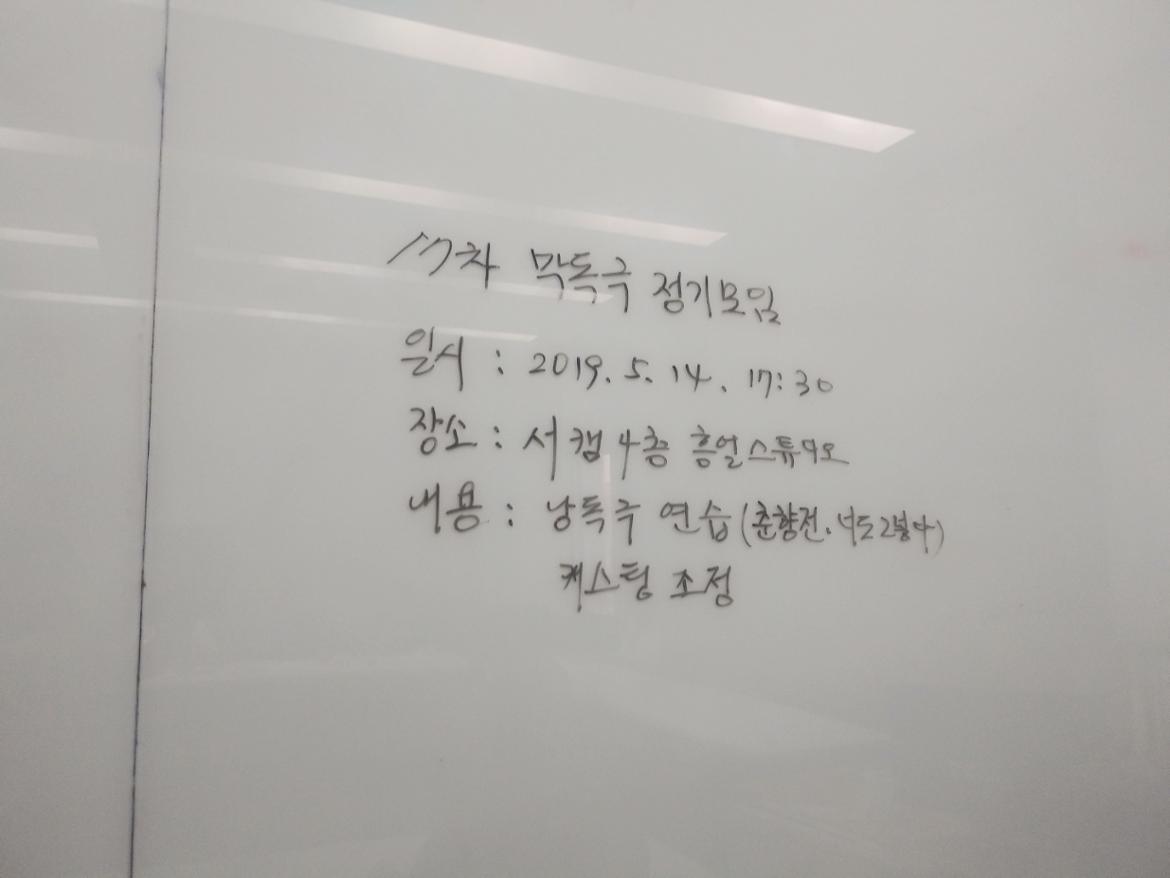 17차 막독극 정기모임
일시 : 2019. 5. 14. 17:30
장소 : 서캠 4층 흥얼스튜디오
내용 : 낭독극 연습 (춘향전. 너도 2붕어)
캐스팅 조정